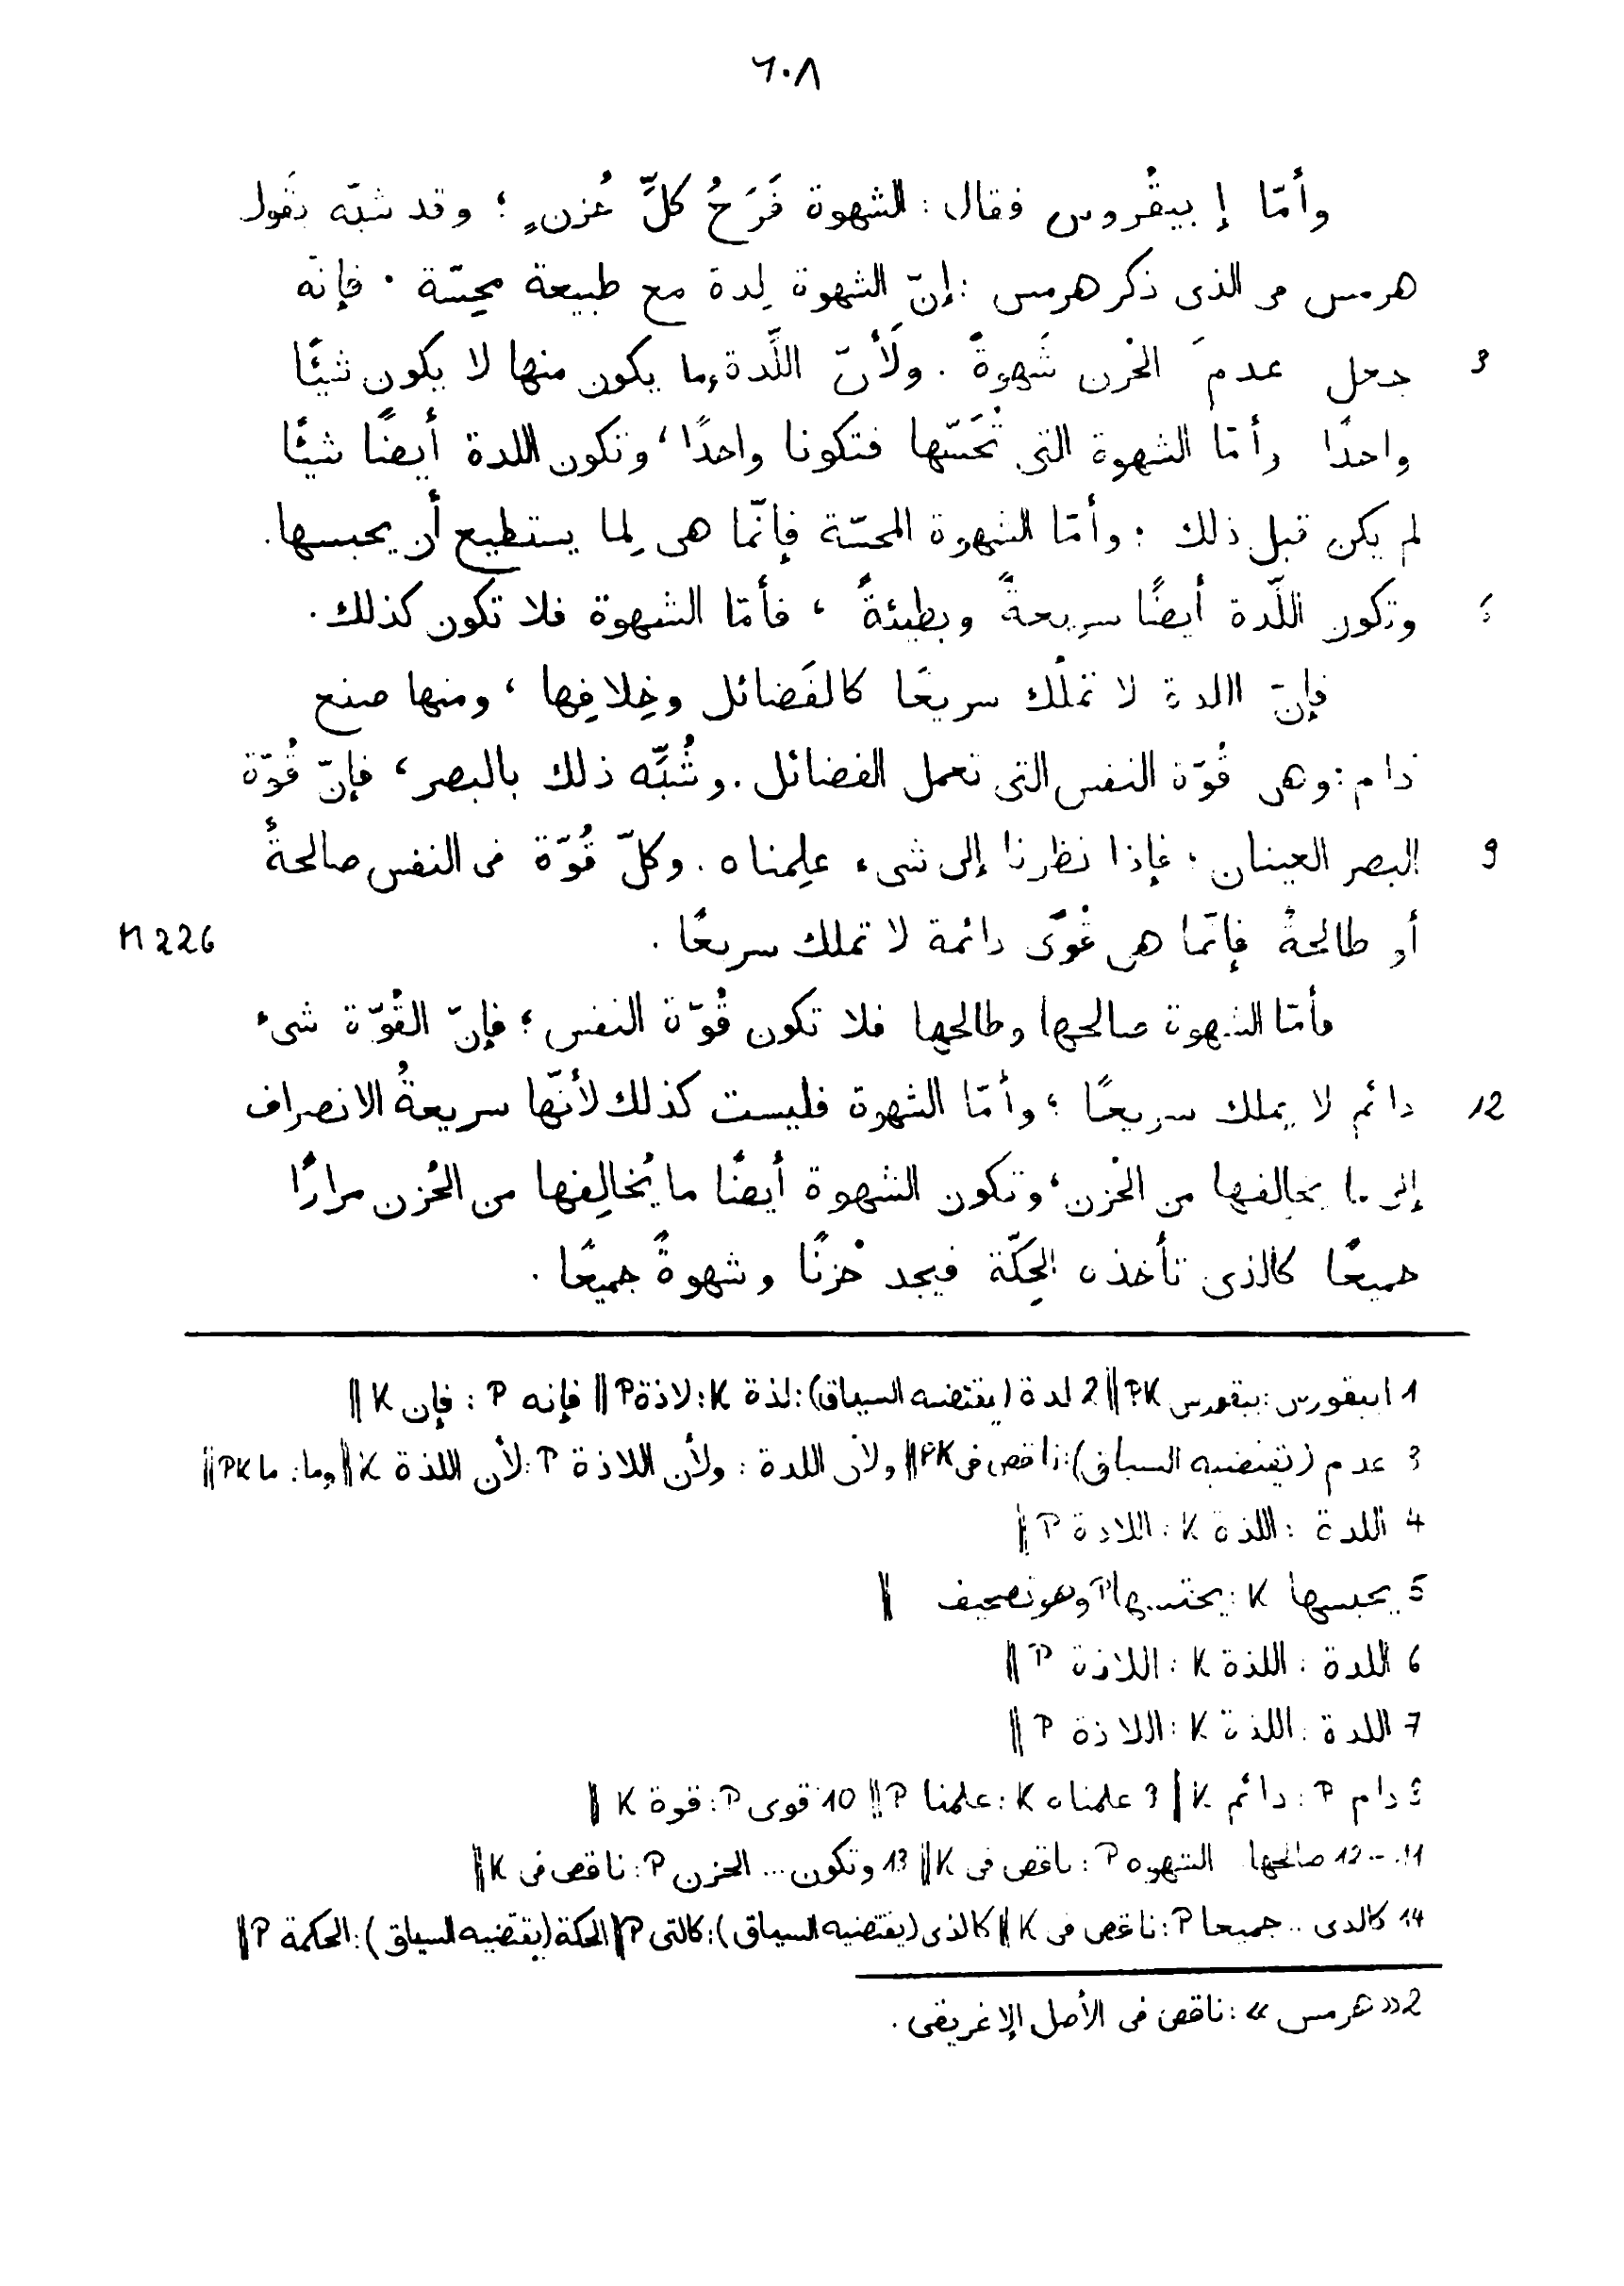 ٦٠٨
وأمّا إبيقُروس فقال: الشهوة فَرَحُ كلِّ حُزنٍ؛ وقد شبّه بقَول
هرمس فى الذى ذكر هرمس: إنّ الشهوة لِدة مع طبيعة محِسّة. فإنّه
3 جعل عدمَ الحُزن شَهوةً. ولَأنّ اللِّدة وما يكون منها لا يكون شيئًا
واحدًا وأمّا الشهوة التى تُحَسّها فتكونا واحدًا، وتكون اللدة أيضًا شيئًا
لم يكن قبل ذلك؛ وأمّا الشهوة المحسّة فإنّما هى لِما يستطيع أن يحبسها.
وتكون اللِّدة أيضًا سريعةً وبطيئةً، فأمّا الشهوة فلا تكون كذلك.
فإنّ اللدة لا تملّك سريعًا كالفَضائل وخِلافِها، ومنها صنع
دام: وهى قُوّة النفس التى تعمل الفضائل. وشُبِّه ذلك بالبصر، فإنّ قُوّة
9 البصر العينان؛ فإذا نظرنا إلى شىء علِمناه. وكلّ قُوّة فى النفس صالحةُ
أو طالحةُ فإنّما هى قُوًى دائمة لا تملك سريعًا.
M 226
فأمّا الشهوة صالحها وطالحها فلا تكون قُوّة النفس؛ فإنّ القُوّة شىء
12 دائم لا يملك سريعًا؛ وأمّا الشهوة فليست كذلك لأنّها سريعةُ الانصراف
إلى ما يخالفها من الحُزن، وتكون الشهوة أيضًا ما يُخالِفها من الحُزن مرارًا
جميعًا كالذى تأخذه الحِكّة فيجد حُزنًا وشهوةً جميعًا.
1 ابيقورس: بيقورس PK || 2 لدة (يقتضيه السياق): لذة K: لاذة P || فإنه P: فإن K ||
3 عدم (يقتضيه السياق): ناقص فى PK || ولأن اللدة: ولأن اللاذة P: لأن اللذة K || وما: ما PK ||
4 اللدة: اللذة K: اللادة P ||
5 يحبسها K: P وهو تصحيف ||
6 اللدة: اللذة K: اللاذة P ||
7 اللدة: اللذة K: اللاذة P ||
8 دام P: دائم K || 9 علمناه K: علمنا P || 10 قوى P: قوة K ||
11-12 صالحها الشهوه P: ناقص فى K || 13 وتكون ... الحزن P: ناقص فى K ||
14 كالدى .. جميعا P: ناقص فى K || كالذى (يقتضيه السياق): كالتى P || الحكة (يقتضيه السياق): الحكمة P ||
2 «هرمس»: ناقص فى الأصل الإغريقى.